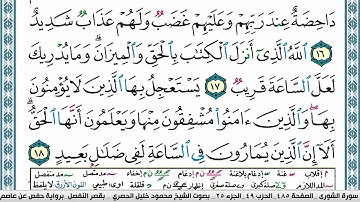 دَاحِضَةٌ عِندَ رَبِّهِمْ وَعَلَيْهِمْ غَضَبٌ وَلَهُمْ عَذَابٌ شَدِيدٌ
١٦ ٱللَّهُ ٱلَّذِىٓ أَنزَلَ ٱلْكِتَٰبَ بِٱلْحَقِّ وَٱلْمِيزَانَ ۗ وَمَا يُدْرِيكَ
لَعَلَّ ٱلسَّاعَةَ قَرِيبٌ ١٧ يَسْتَعْجِلُ بِهَا ٱلَّذِينَ لَا يُؤْمِنُونَ
بِهَا ۖ وَٱلَّذِينَ ءَامَنُوا۟ مُشْفِقُونَ مِنْهَا وَيَعْلَمُونَ أَنَّهَا ٱلْحَقُّ ۗ
أَلَآ إِنَّ ٱلَّذِينَ يُمَارُونَ فِى ٱلسَّاعَةِ لَفِى ضَلَٰلٍۭ بَعِيدٍ ١٨
سورة الشورى الصفحة ٤٨٥ الحزب ٤٩ الجزء ٢٥ بصوت الشيخ محمود خليل الحصري - بقصر المنفصل برواية حفص عن عاصم